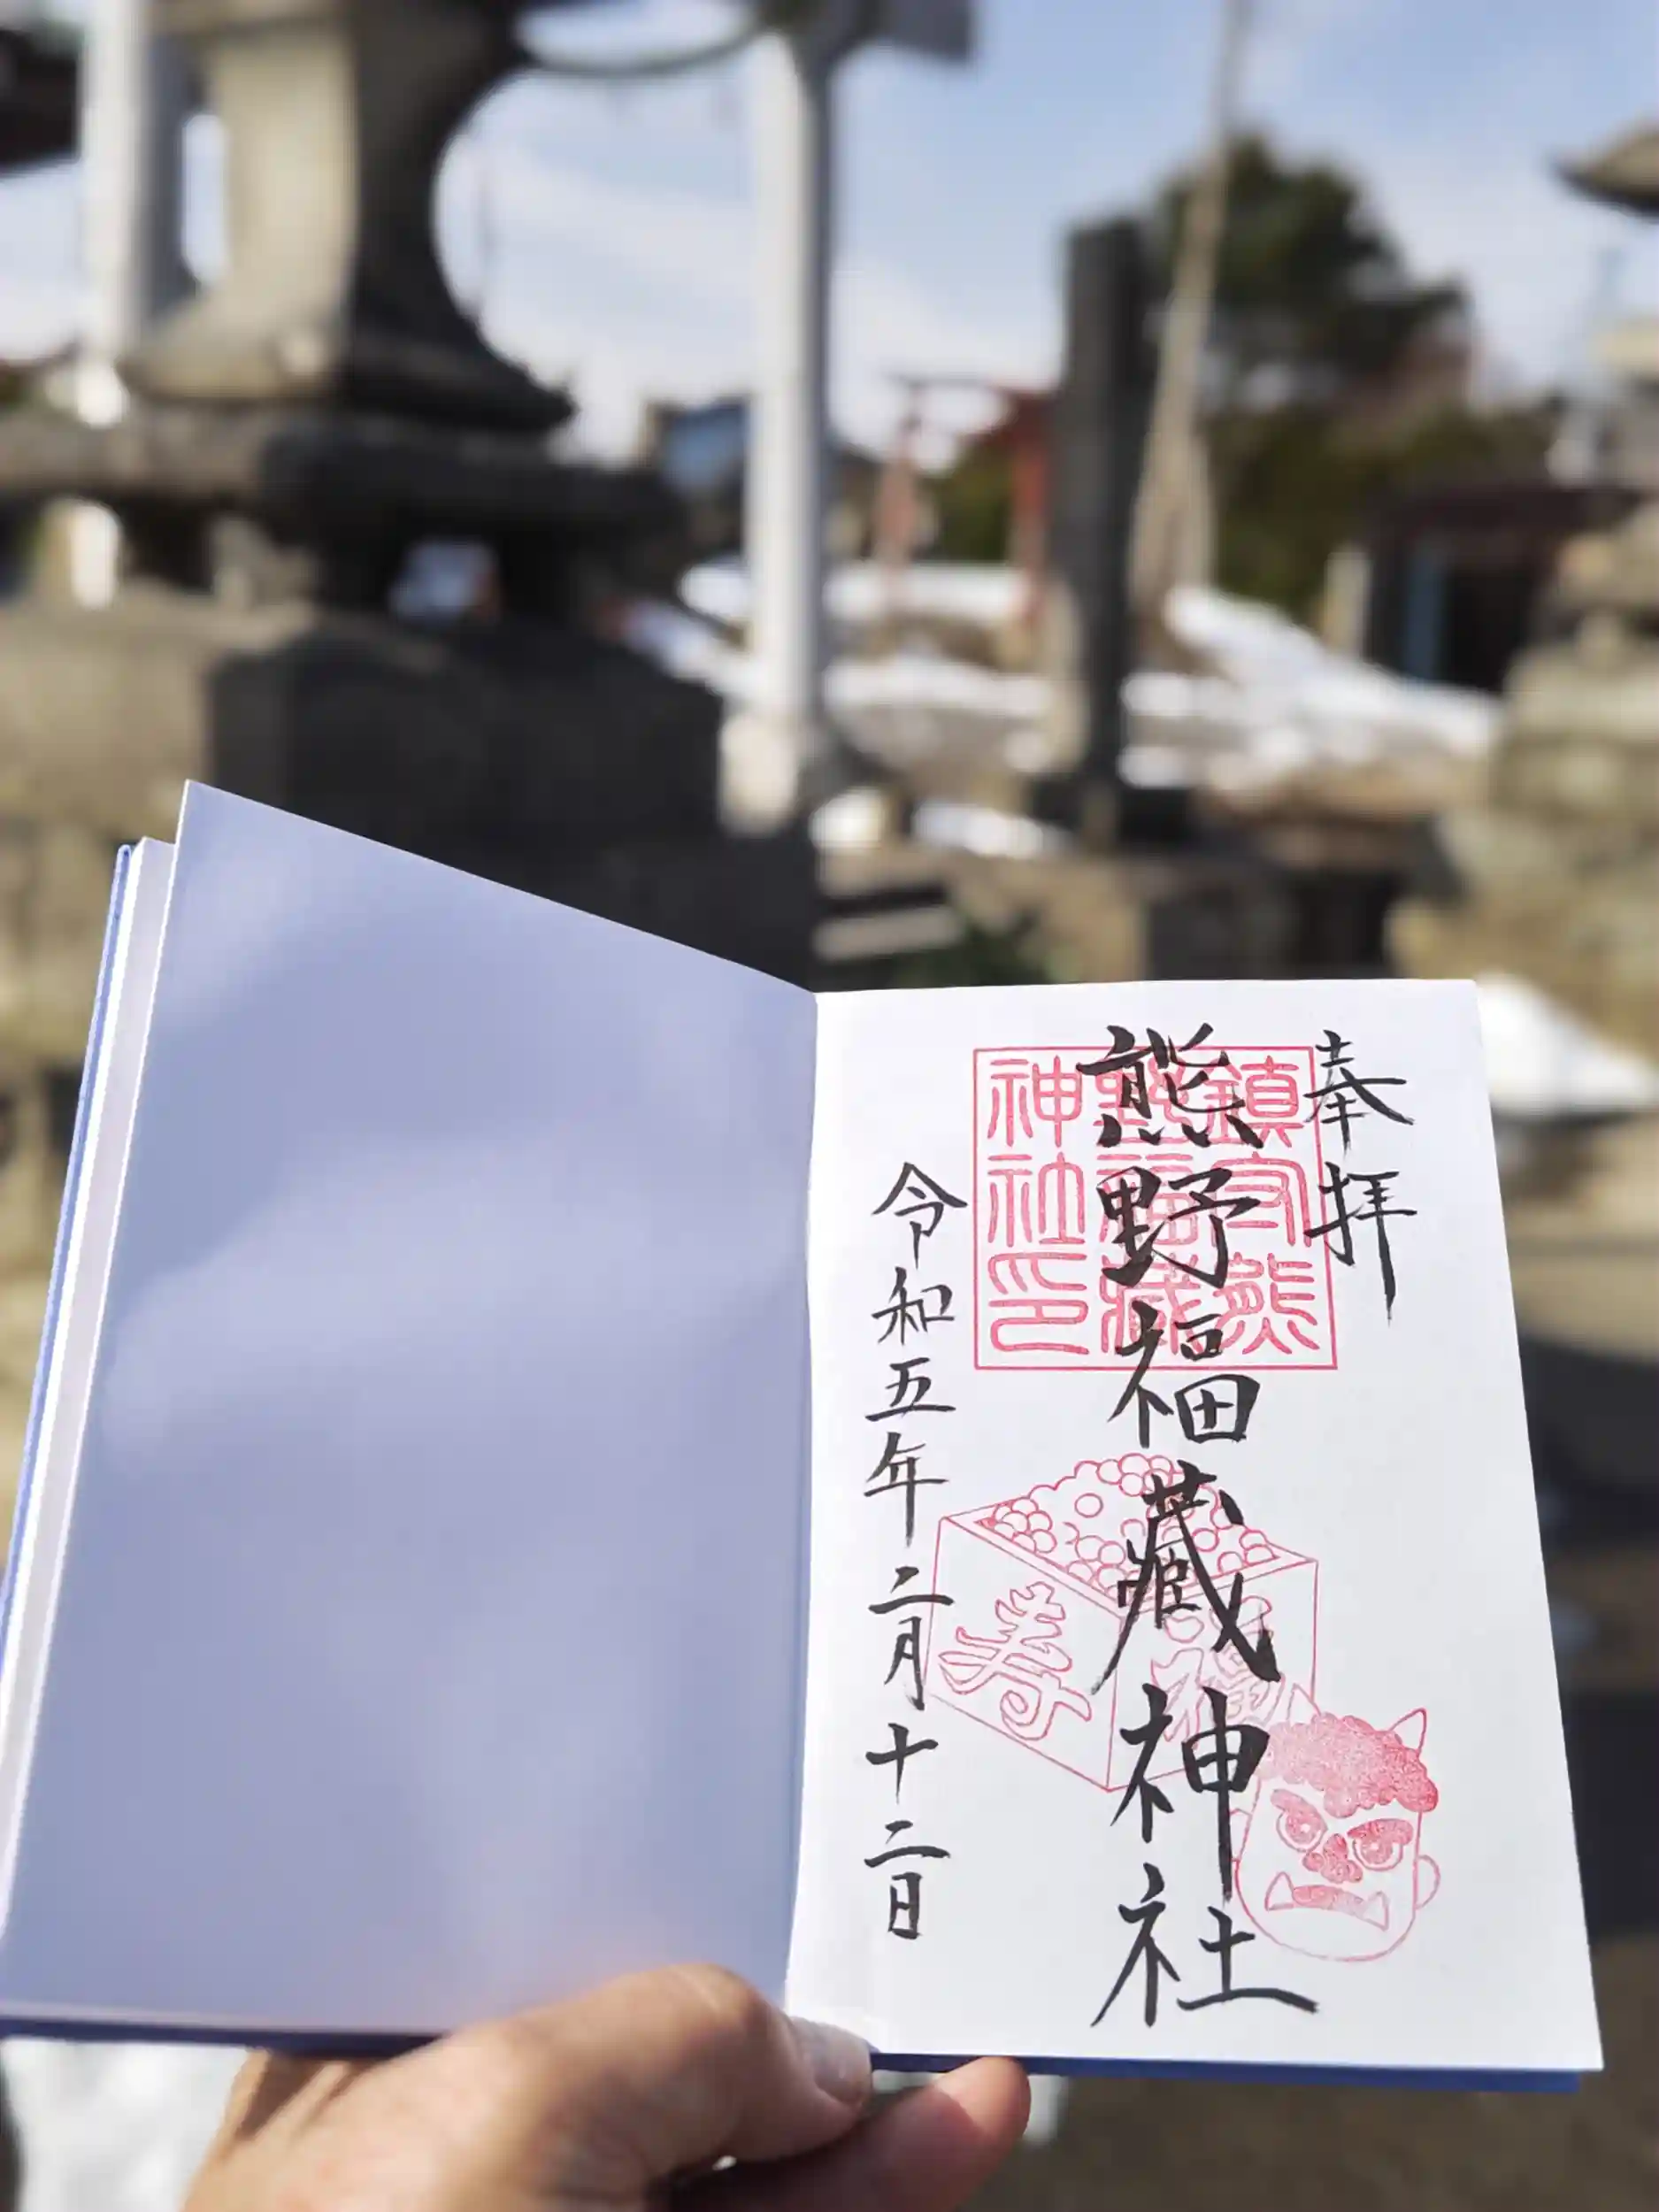 奉拝
鎮守熊
野福蔵
神社印
熊野福蔵神社
福
寿
令和五年二月十二日